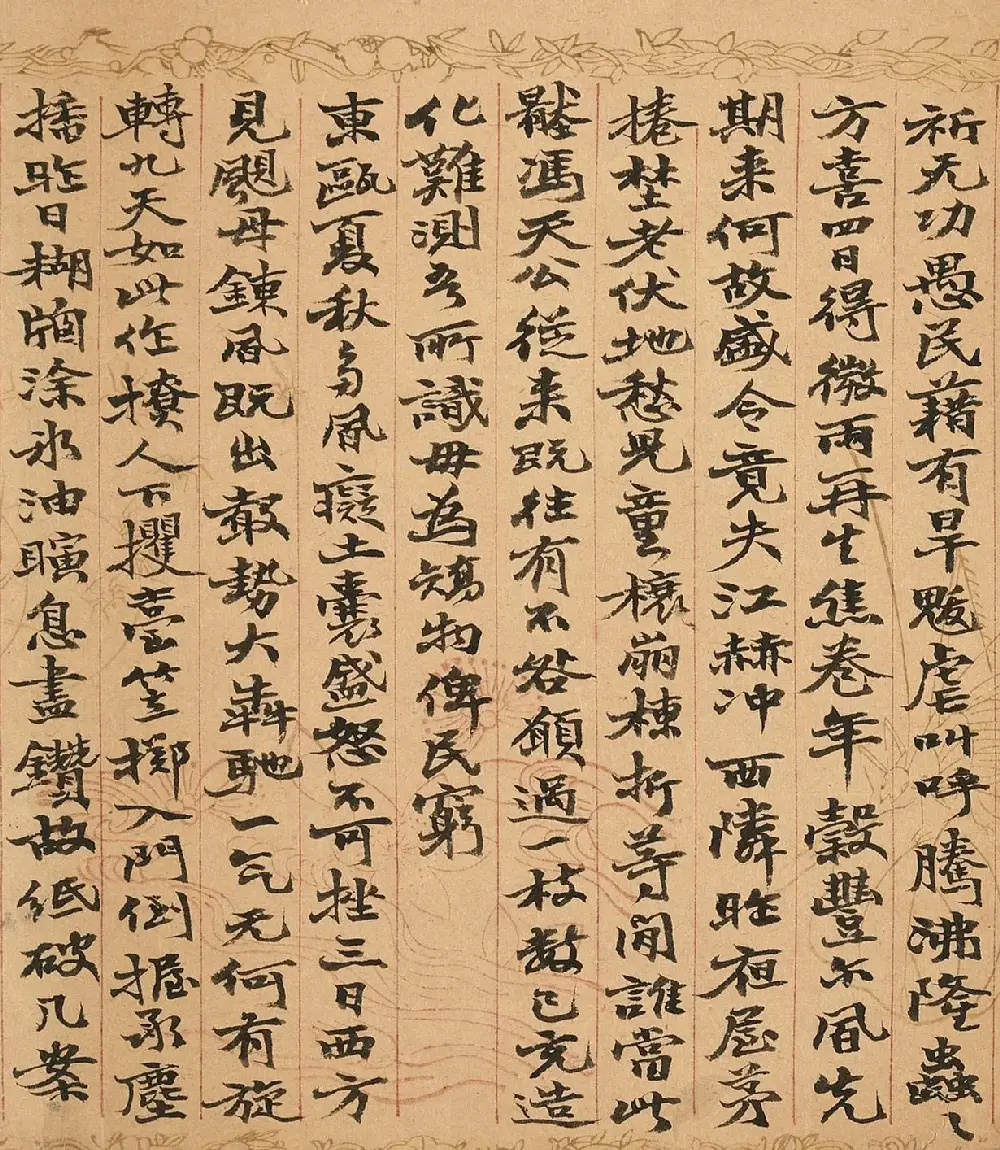 祈天功愚民藉有旱魃虐叫呼騰沸隆蟲〻
方喜四日得微雨再生焦卷年穀豐尒風先
期来何故盛令竟失江赫冲西隣昨夜屋茅
捲埜老伏地愁兒童榱崩棟折等閒誰當此
馮天公從来既往有不咎願過一枝數已充造
化難測吾所識毋為鴆物俾民窮
東甌夏秋多風癡土囊盛怒不可挫三日西方
見颶母鍊風既出穀勢大犇馳一气无何有旋
轉九天如此作撩人下攫臺笠擲入門倒握承塵
播昨日糊牕涂氷油瞚息盡鑽故紙破几案